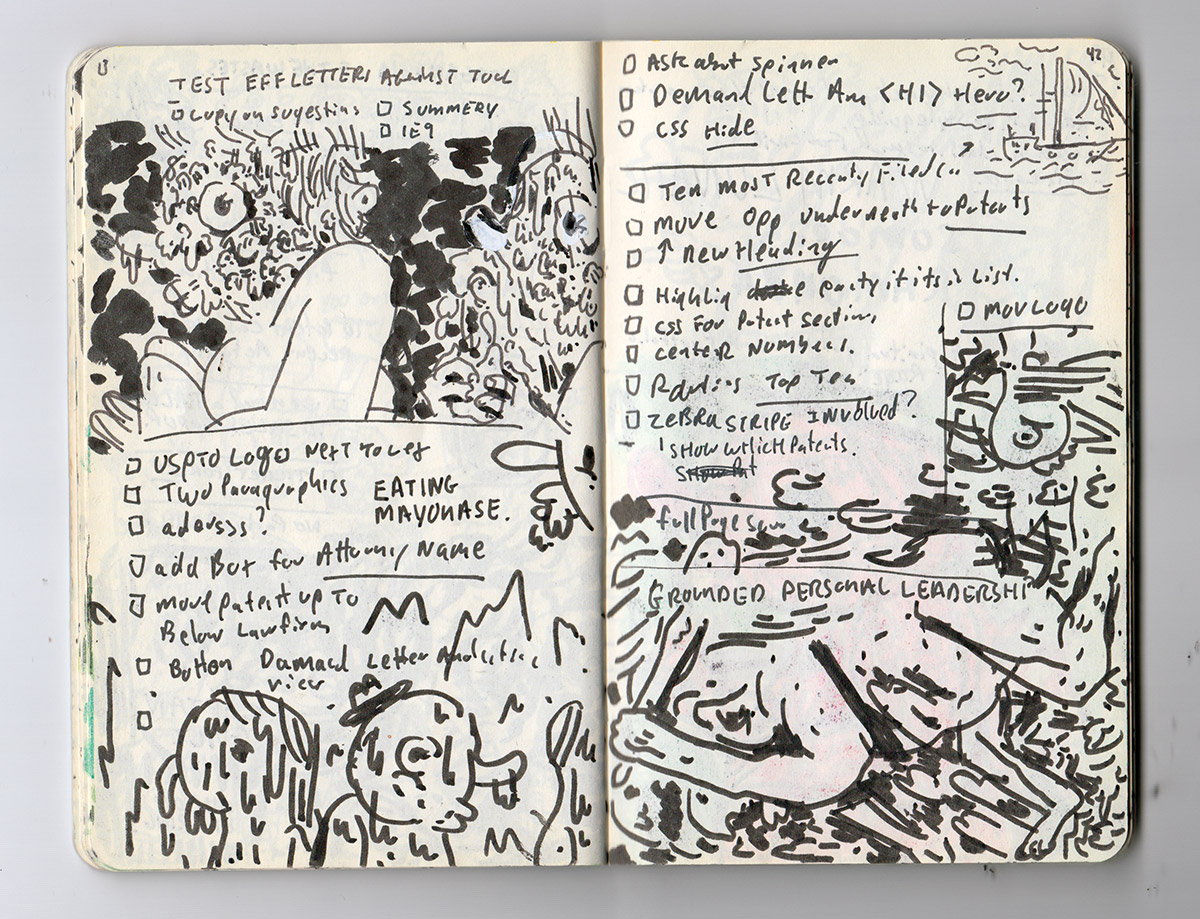 TEST EFF LETTERS AGAINST TOOL
Copy on sugestins
SUMMERY
IE9
USPTO LOGO NEXT TO
Two Paragraphics
EATING
MAYONASE.
adevsss?
add Box for Attorney Name
Move Patent up To
Below Lawfirm
Button Damand Letter
view
42
Ask about Spinner
Demand Lett Am <H1> Hero?
CSS Hide
Ten most Recenty Filed
Move Opp underneath to Patents
↑ New Heading
Highlig party if its in List.
CSS For Patent Sections
Center Numbers.
MOV LOGO
Top Ten
ZEBRA STRIPE INVOLVED?
SHOW WHICH Patents.
full Page
GROUNDED PERSONAL LEADERSHIP